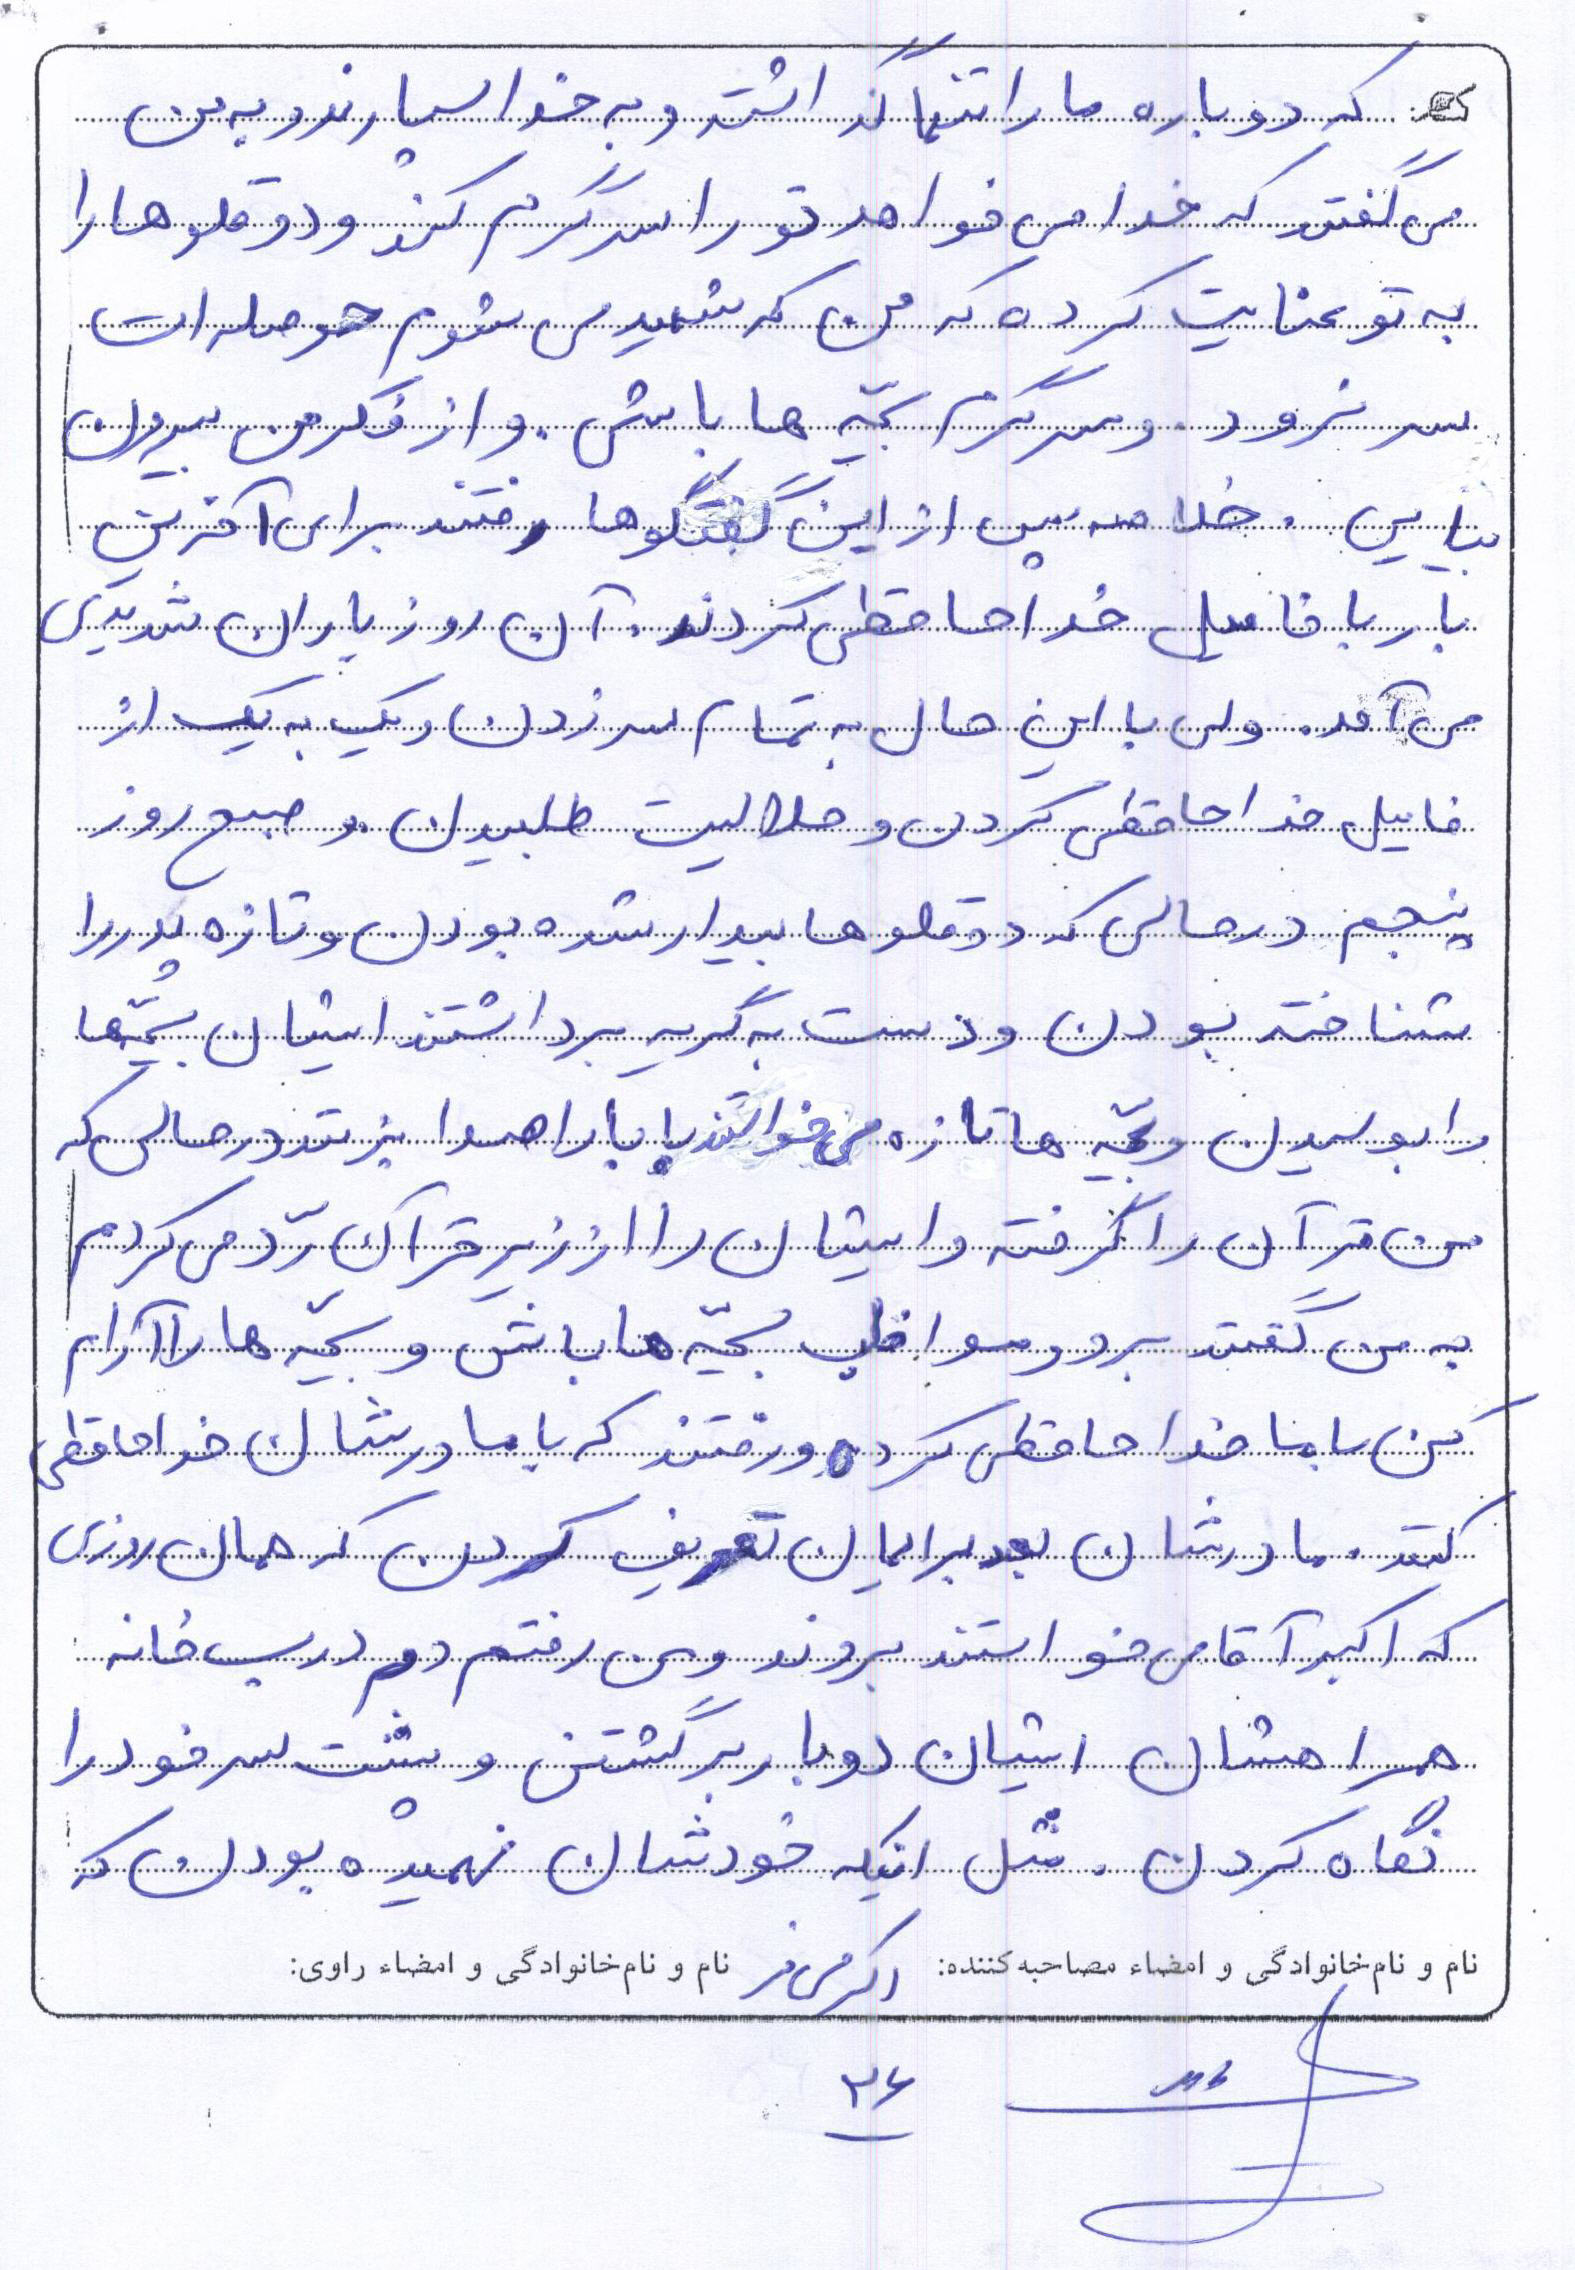 که دوباره ما را تنها گذاشته و به خدا بسپارند و به من
می گفتند که خدا می خواهد تو را سرگرم کند و دوقلوها را
به تو عنایت کرده که من که شهید می شوم حوصله ات
سر نرود. و سرگرم بچّه ها باش. و از فکر من بیرون
بیایی. خلاصه پس از این گفتگوها رفتند برای آخرین
بار با فامیل خداحافظی کردند. آن روز باران شدیدی
می آمد. ولی با این حال به تمام سر زدن و یک به یک از
فامیل خداحافظی کردن و حلالیت طلبیدن. و صبح روز
پنجم در حالی که دوقلوها بیدار شده بودن و تازه پدر را
شناخته بودن و دست به گریه برداشتند ایشان بچّه ها
را بوسیدن و بچّه ها تازه می خواستند بابا را صدا بزنند در حالی که
من قرآن را گرفته و ایشان را از زیر قرآن ردّ می کردم
به من گفتند برو و مواظب بچّه ها باش و بچّه ها را آرام
کن با ما خداحافظی کرده و رفتند که با مادرشان خداحافظی
کنند. مادرشان بعد برایمان تعریف کردن که همان روزی
که اکبر آقا می خواستند بروند و من رفتم دم درب خانه
همراهشان ایشان دوبار برگشتن و پشت سر خود را
نگاه کردن. مثل اینکه خودشان فهمیده بودن که
نام و نام‌خانوادگی و امضاء مصاحبه‌کننده: اکرمی فر نام و نام‌خانوادگی و امضاء راوی:
۳۶